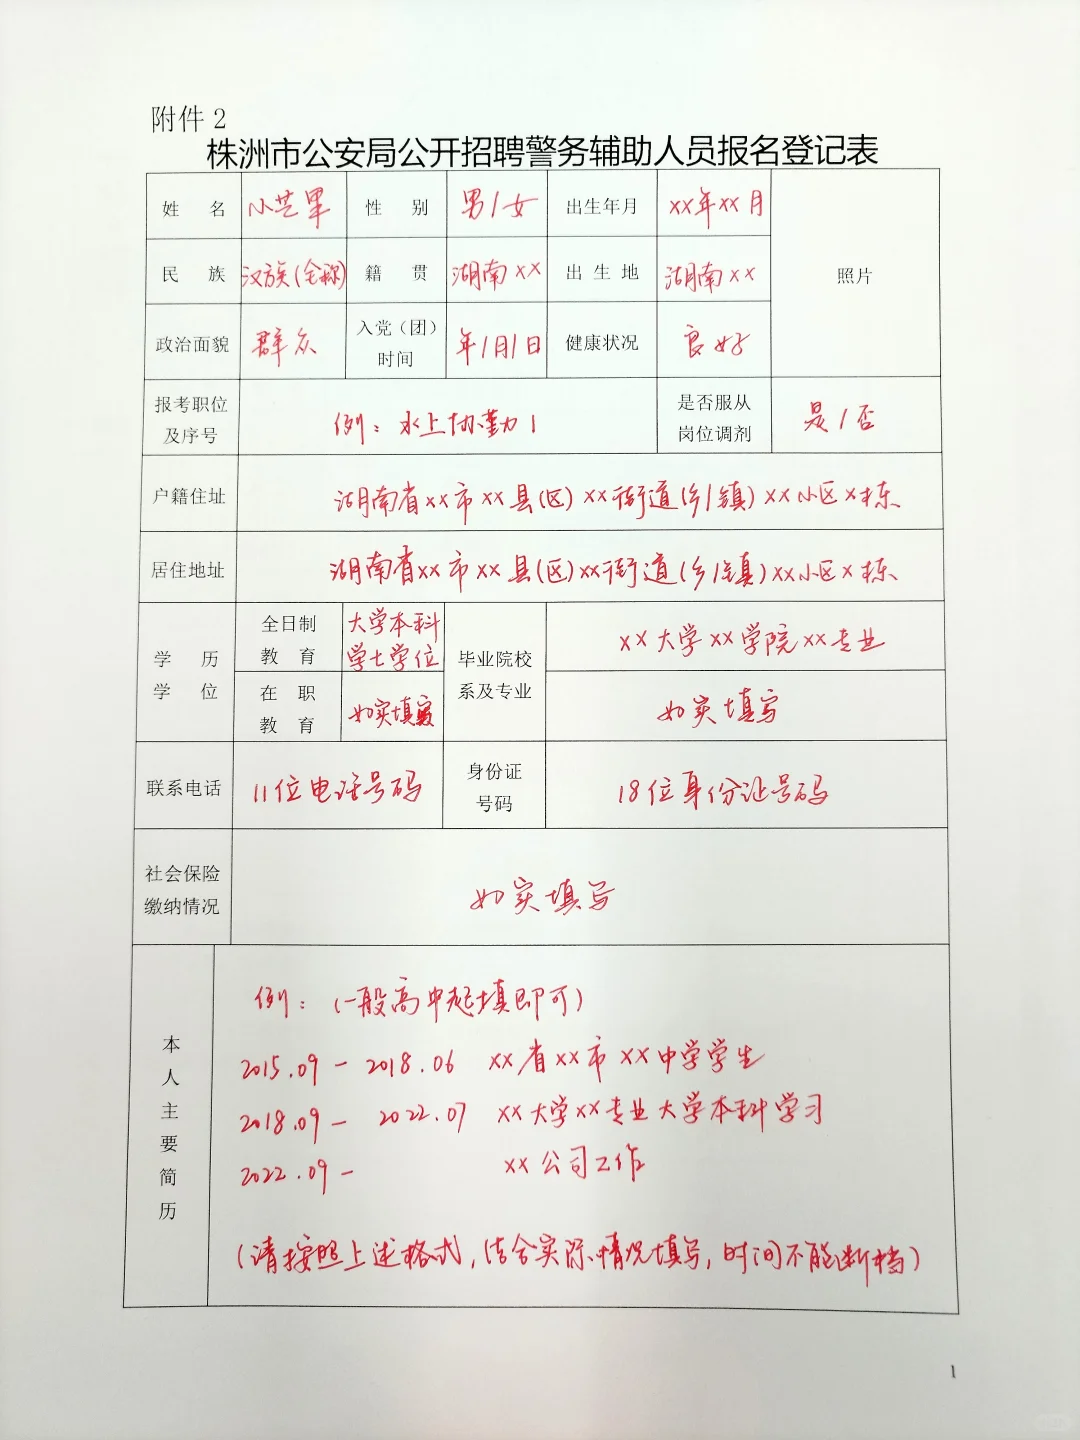 附件 2
株洲市公安局公开招聘警务辅助人员报名登记表
姓 名 小芝果 性 别 男/女 出生年月 xx年xx月
民 族 汉族(全称) 籍 贯 湖南xx 出 生 地 湖南xx 照片
政治面貌 群众 入党（团）时间 年1月1日 健康状况 良好
报考职位及序号 例：水上协勤1 是否服从岗位调剂 是/否
户籍住址 湖南省xx市xx县(区)xx街道(乡/镇)xx小区x栋
居住地址 湖南省xx市xx县(区)xx街道(乡/镇)xx小区x栋
学 历 学 位 全日制教 育 大学本科 学士学位 毕业院校系及专业 xx大学xx学院xx专业
在 职 教 育 如实填写 如实填写
联系电话 11位电话号码 身份证号码 18位身份证号码
社会保险缴纳情况 如实填写
本人主要简历
例：(一般高中起填即可)
2015.09 - 2018.06 xx省xx市xx中学学生
2018.09 - 2022.07 xx大学xx专业大学本科学习
2022.09 - xx公司工作
(请按照上述格式,结合实际情况填写,时间不能断档)
1